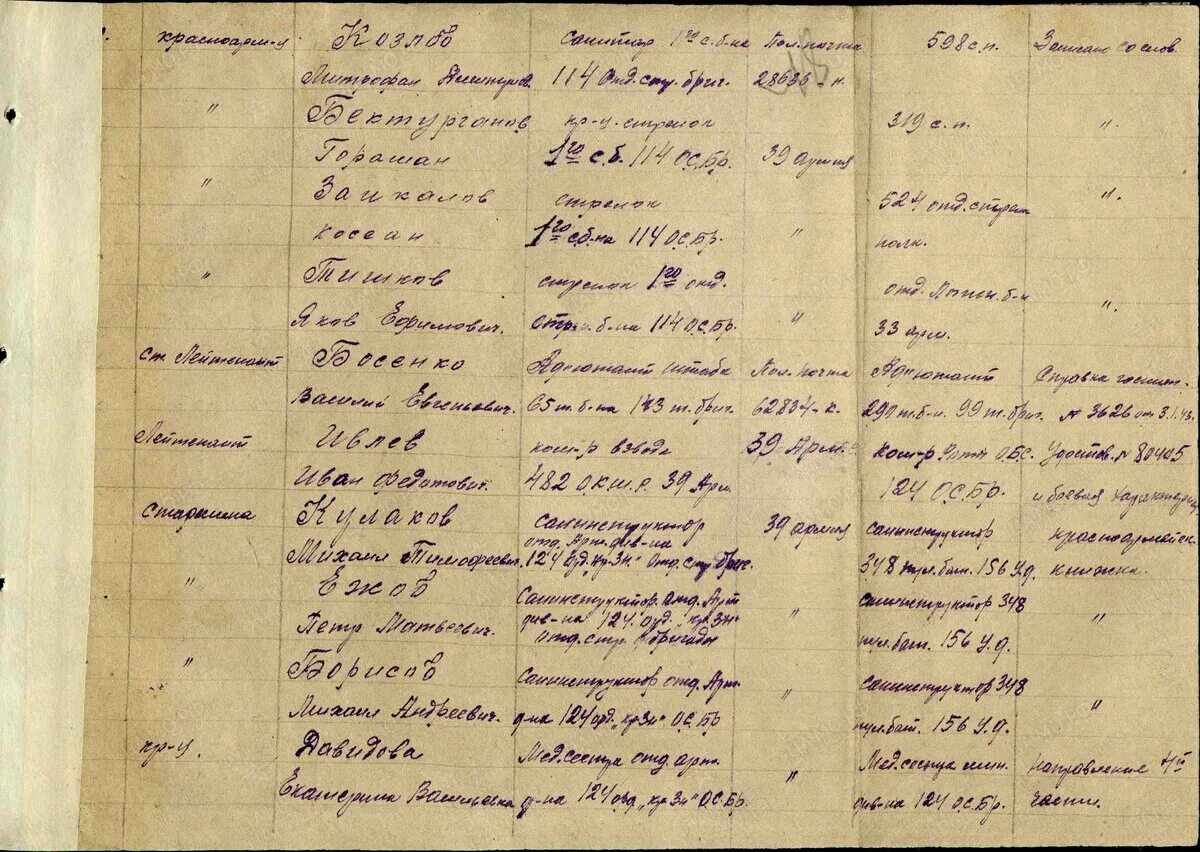 красноарм-ц Козлов санитар 1го с.б-на Пол. почта 598 с.п. Записано со слов.
Митрофан 114 Отд. стр. бриг. 28636-н.
" Бектурганов кр-ц. стрелок 319 с.п. "
Горашан 1го с.б. 114 О.С.Бр. 39 армия
" Заикалов стрелок 524 отд. стрелк "
косеан 1го с.б-на 114 О.С.Бр. " полк.
" Тишков стрелок 1го отд. отд. б-н "
Яков Ефимович. стр. б-на 114 О.С.Бр. " 33 арм.
ст. Лейтенант Босенко Адъютант штаба Пол. почта Адъютант Справка госпит.
Василий Евгеньевич. 65 т. б-на 173 т. бриг. 62834-к. 290 т. б-н. 99 т. бриг. № 3626 от 3.1.43.
Лейтенант Ивлев ком-р взвода 39 Арм. ком-р Роты О.Б.С. Удостов. № 80405
Иван Федотович. 482 О.К.Ш.Р. 39 Арм. 124 О.С.Бр. и боевая характерист.
старшина Кулаков санинструктор 39 армия санинструктор красноармейск.
отд. Арт. див-на
Михаил Тимофеевич. 124 орд. "кр. Зн" Отд. стр. бриг. 348 пул. бат. 156 У.д. книжка.
" Ежов Санинструктор. отд. Арт " санинструктор 348 "
Петр Матвеевич. див-на 124 орд. "кр. Зн" пул. бат. 156 У.д.
отд. стр. бригады
" Борисов Санинструктор отд. Арт. " санинструктор 348 "
Михаил Андреевич. д-на 124 орд. "кр. Зн" О.С.Бр пул. бат. 156 У.д.
кр-ц. Давидова Мед. сестра отд. арт. " Мед. сестра мин. направление
Екатерина Васильевна д-на 124 орд. "кр. Зн" О.С.Бр. див-на 124 О.С.Бр. части.